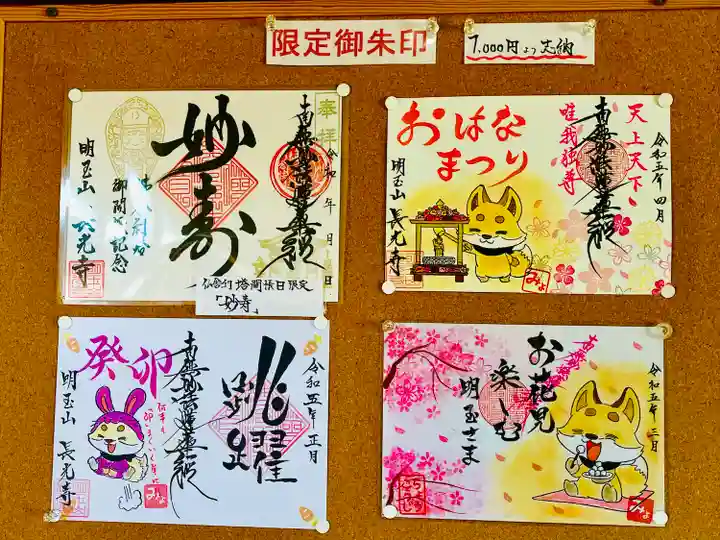 限定御朱印
1,000円より志納
奉拝
令和 年 月 日
南無妙法蓮華経
妙壽
御開帳記念
明玉山 長光寺
仏舎利塔開帳日限定
「妙寿」
おはな
まつり
天上天下
唯我独尊
令和五年 四月
南無妙法蓮華経
明玉山 長光寺
みょ
癸卯
南無妙法蓮華経
跳躍
令和五年 正月
明玉山 長光寺
みょ
お花見
楽しむ
明玉さま
令和五年 三月
みょ